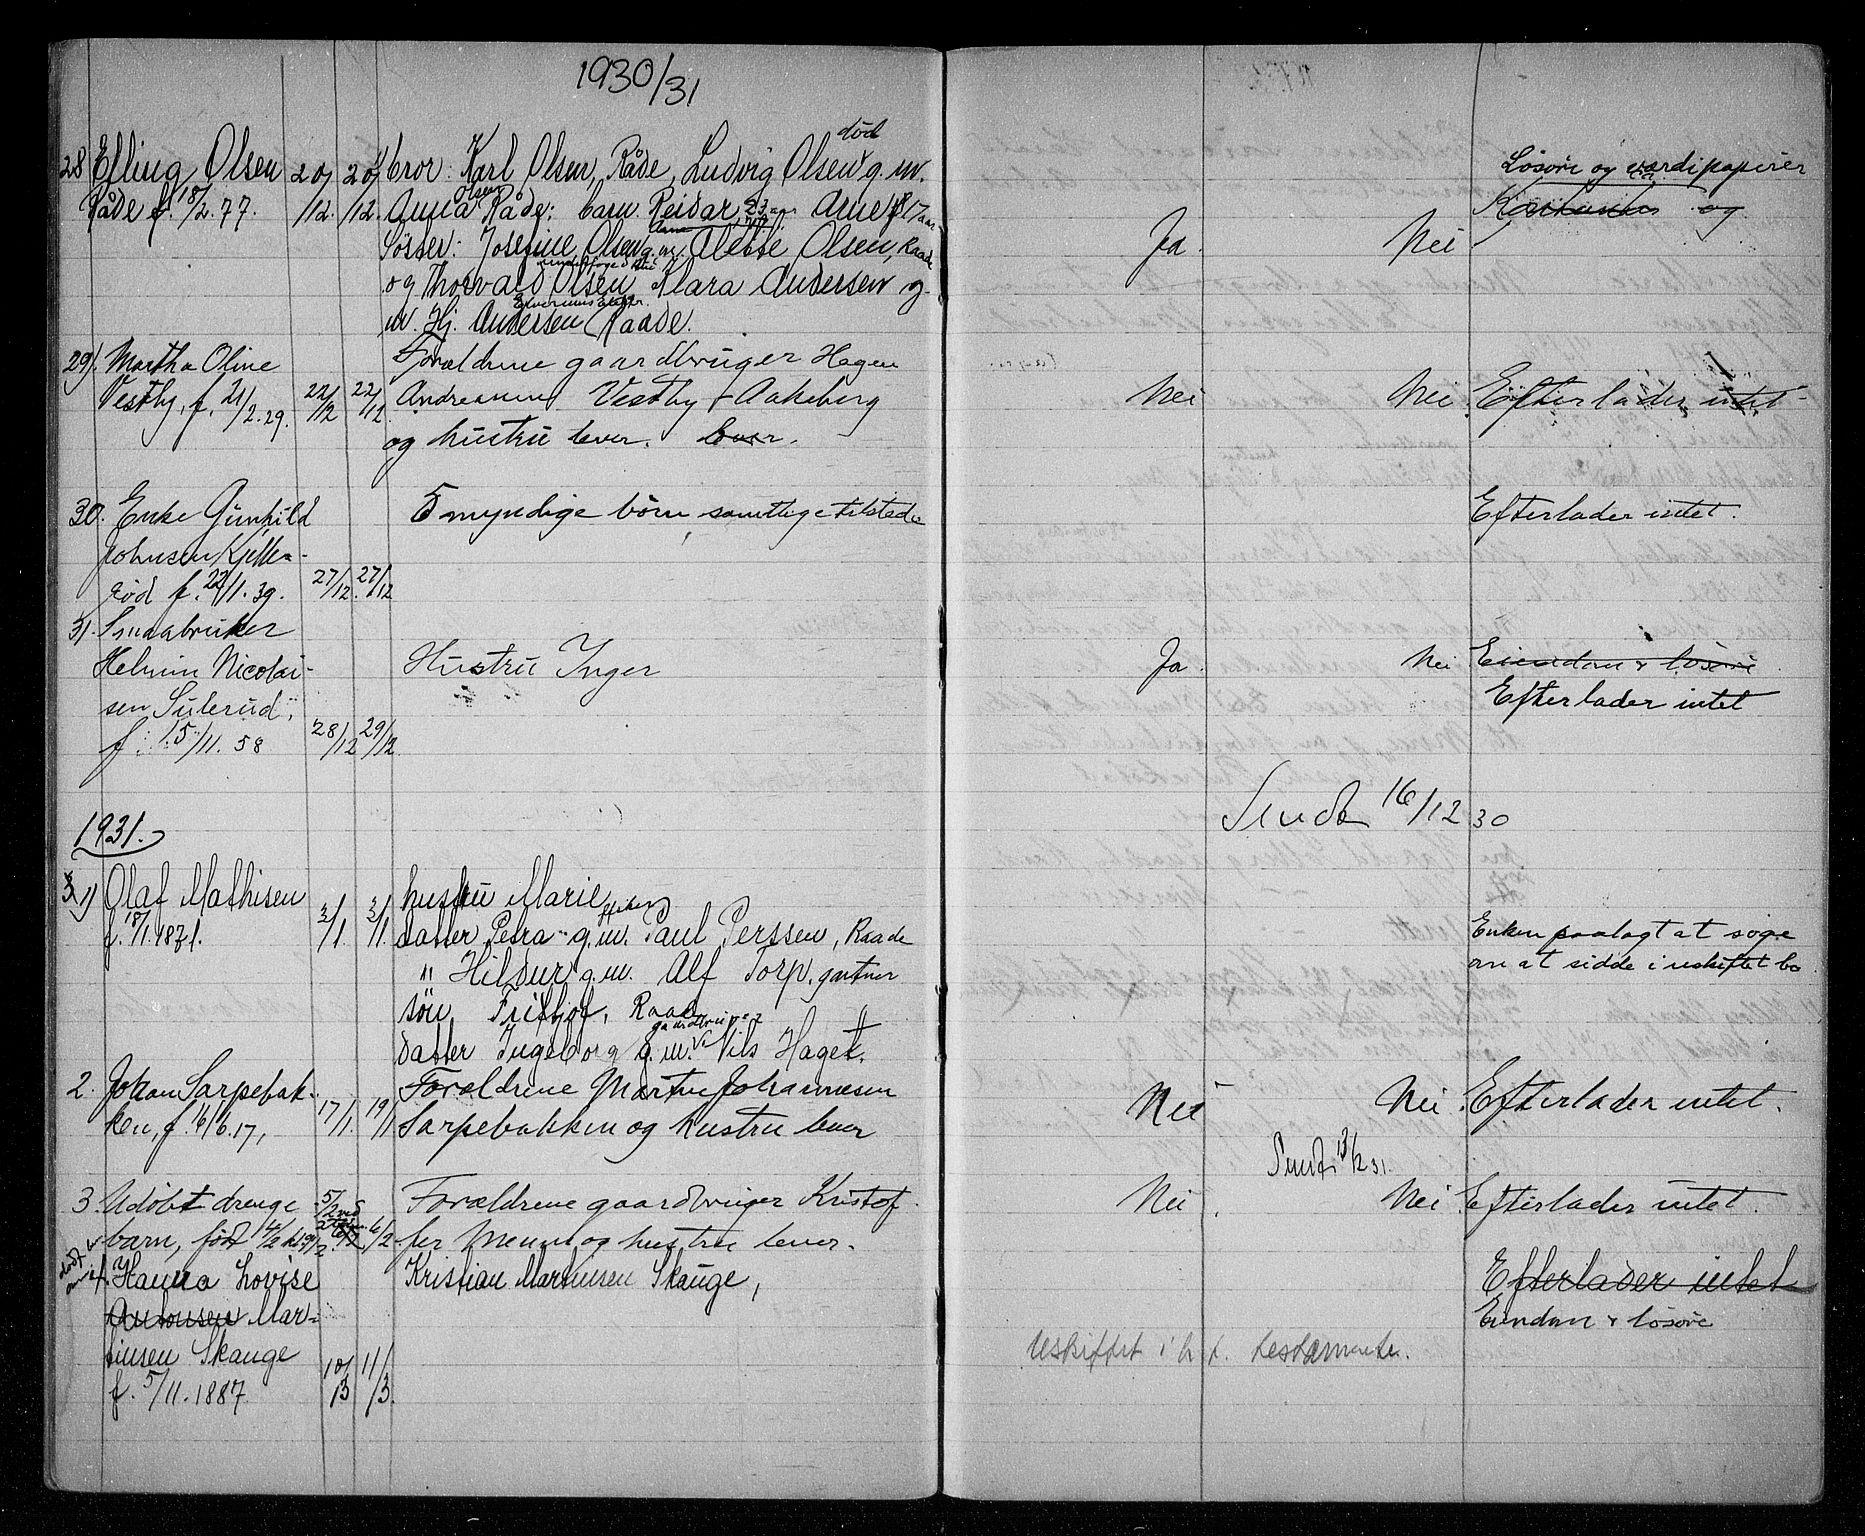 1930/31
28 Elling Olsen 20/12. 20/12. bror: Karl Olsen, Råde, Ludvig Olsen død g. m.
Råde f. 18/2. 77. Anna Olsen Råde: barn Reidar 23 aar Arne 17 aar
Søster: Josefine Olsen g. m. Olsen, Raade
og Thorvald Olsen Klara Andersen g.
m. Hj. Andersen Raade.
Ja Nei Løsøre og værdipapirer
og
29). Martha Oline Forældrene gaardbruger Hagen
Vestby, f. 21/2. 29. 22/12 22/12 Andreassen Vestby Aakeberg
og hustru lever. lever.
Nei Nei Efterlader intet
30. Enke Gunhild 5 myndige børn samtlige tilstede
Johnsen Kjelle-
rød f. 22/1. 39. 27/12 27/12
Efterlader intet.
31. Smaabruker
Helmin Nicolai- Hustru Inger
sen Sulerud,
f. 15/11. 58 28/12 29/12
Ja. Nei Eiendom & løsøre
Efterlader intet
Sendt 16/12 30
1931.
1) Olaf Mathisen 3/1. 3/1. hustru Marie
f. 18/1. 1871. datter Petra g.m. Paul Perssen, Raade
" Hildur g.m. Alf Torp, gartner
søn Fritjof, Raade
gaardbruger
datter Ingeborg g.m. Nils Haget.
Enken paalagt at søge
om at sidde i uskiftet bo
2. Johan Sarpebak- Forældrene Martin Johannesen
ken, f. 16/6. 17, 17/1. 19/1 Sarpebakken og hustru lever
Nei Nei Efterlader intet.
Sendt 13/2 31.
3. Udøbt drenge 5/2 Forældrene gaardbruger Kristof
barn, født 4/2 6/2 fer Menne og hustru lever.
Nei. Nei Efterlader intet.
Hanna Lovise Kristian Martinsen Skauge,
Antonsen Mar-
tinsen Skauge
f. 5/11. 1887 10/3 11/3.
Efterlader intet
Eiendom & løsøre
Uskiftet i h. t. testamente.